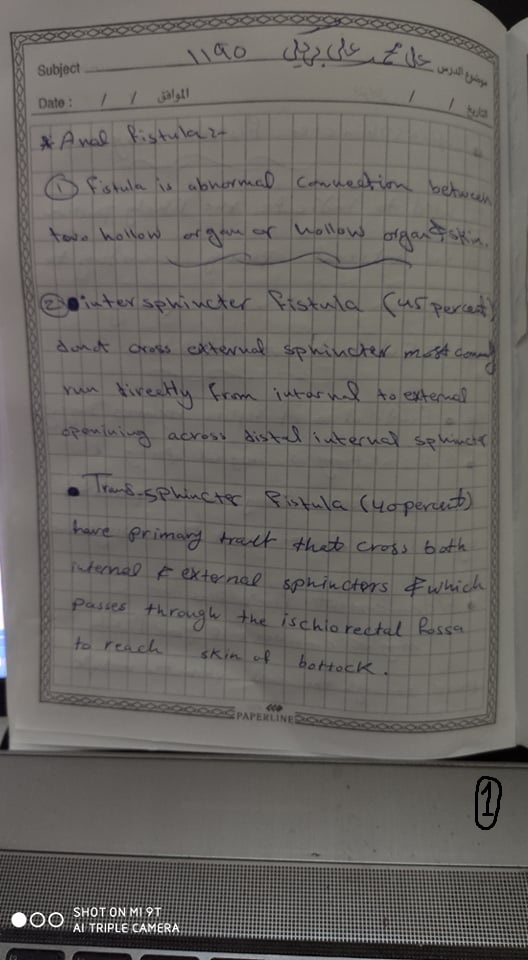 Subject ١١٩٥ علي موضوع الدرس
Date : / / الموافق / / التاريخ
* Anal Fistula :-
① Fistula is abnormal connection between
two hollow organ or hollow organ & skin.
② intersphincter Fistula (45 percent)
donot cross external sphincter most commly
run directly from internal to external
openining across distal internal sphincter
• Trans-sphincter Fistula (40 percent)
have primary tract that cross both
internal & external sphinctors & which
passes through the ischiorectal Fossa
to reach skin of bottock.
PAPERLINE
1
SHOT ON MI 9T
AI TRIPLE CAMERA